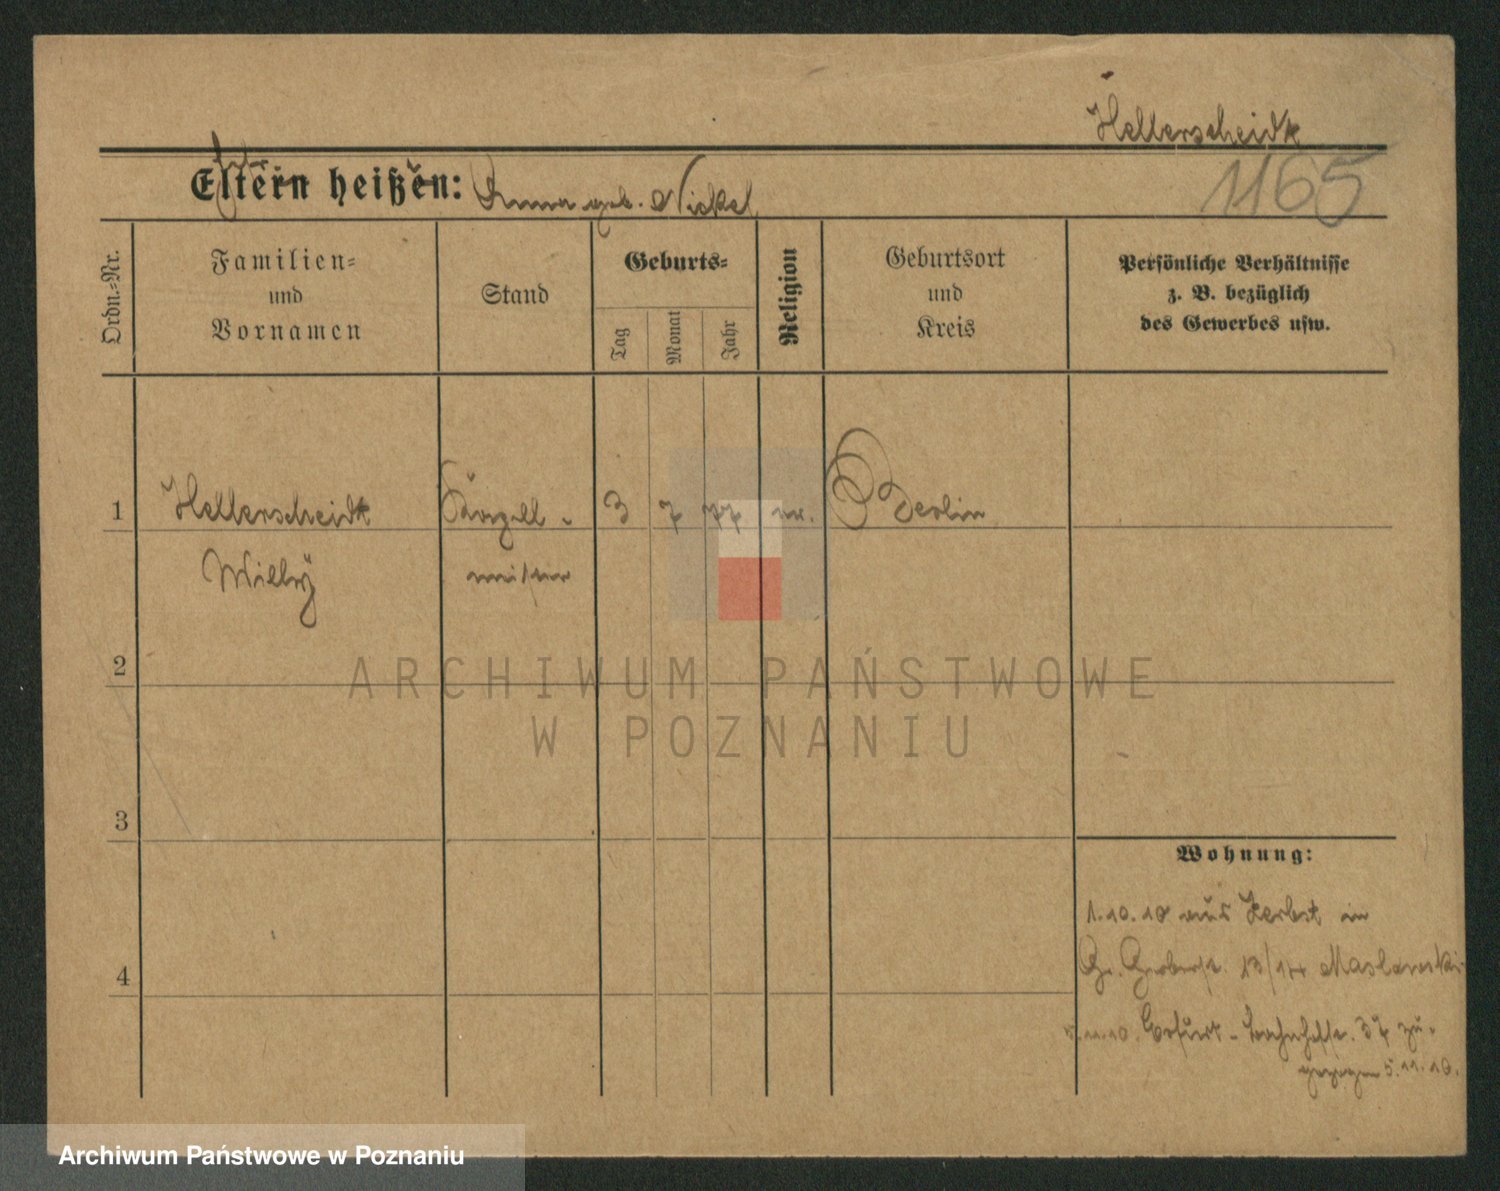 Hellerscheidt
1165
Eltern heißen: Anna geb. Nickel
Ordn.=Nr.
Familien=
und
Vornamen
Stand
Geburts=
Tag
Monat
Jahr
Religion
Geburtsort
und
Kreis
Persönliche Verhältnisse
z. B. bezüglich
des Gewerbes usw.
1 Hellerscheidt 3 7 77 Berlin
Willy
2
3
4
Wohnung:
1.10.10 aus Zerbst in
Gr. Gerberst. 13/14
Erfurt - 37 zu-
gezogen 5.11.10.
ARCHIWUM PAŃSTWOWE
W POZNANIU
Archiwum Państwowe w Poznaniu